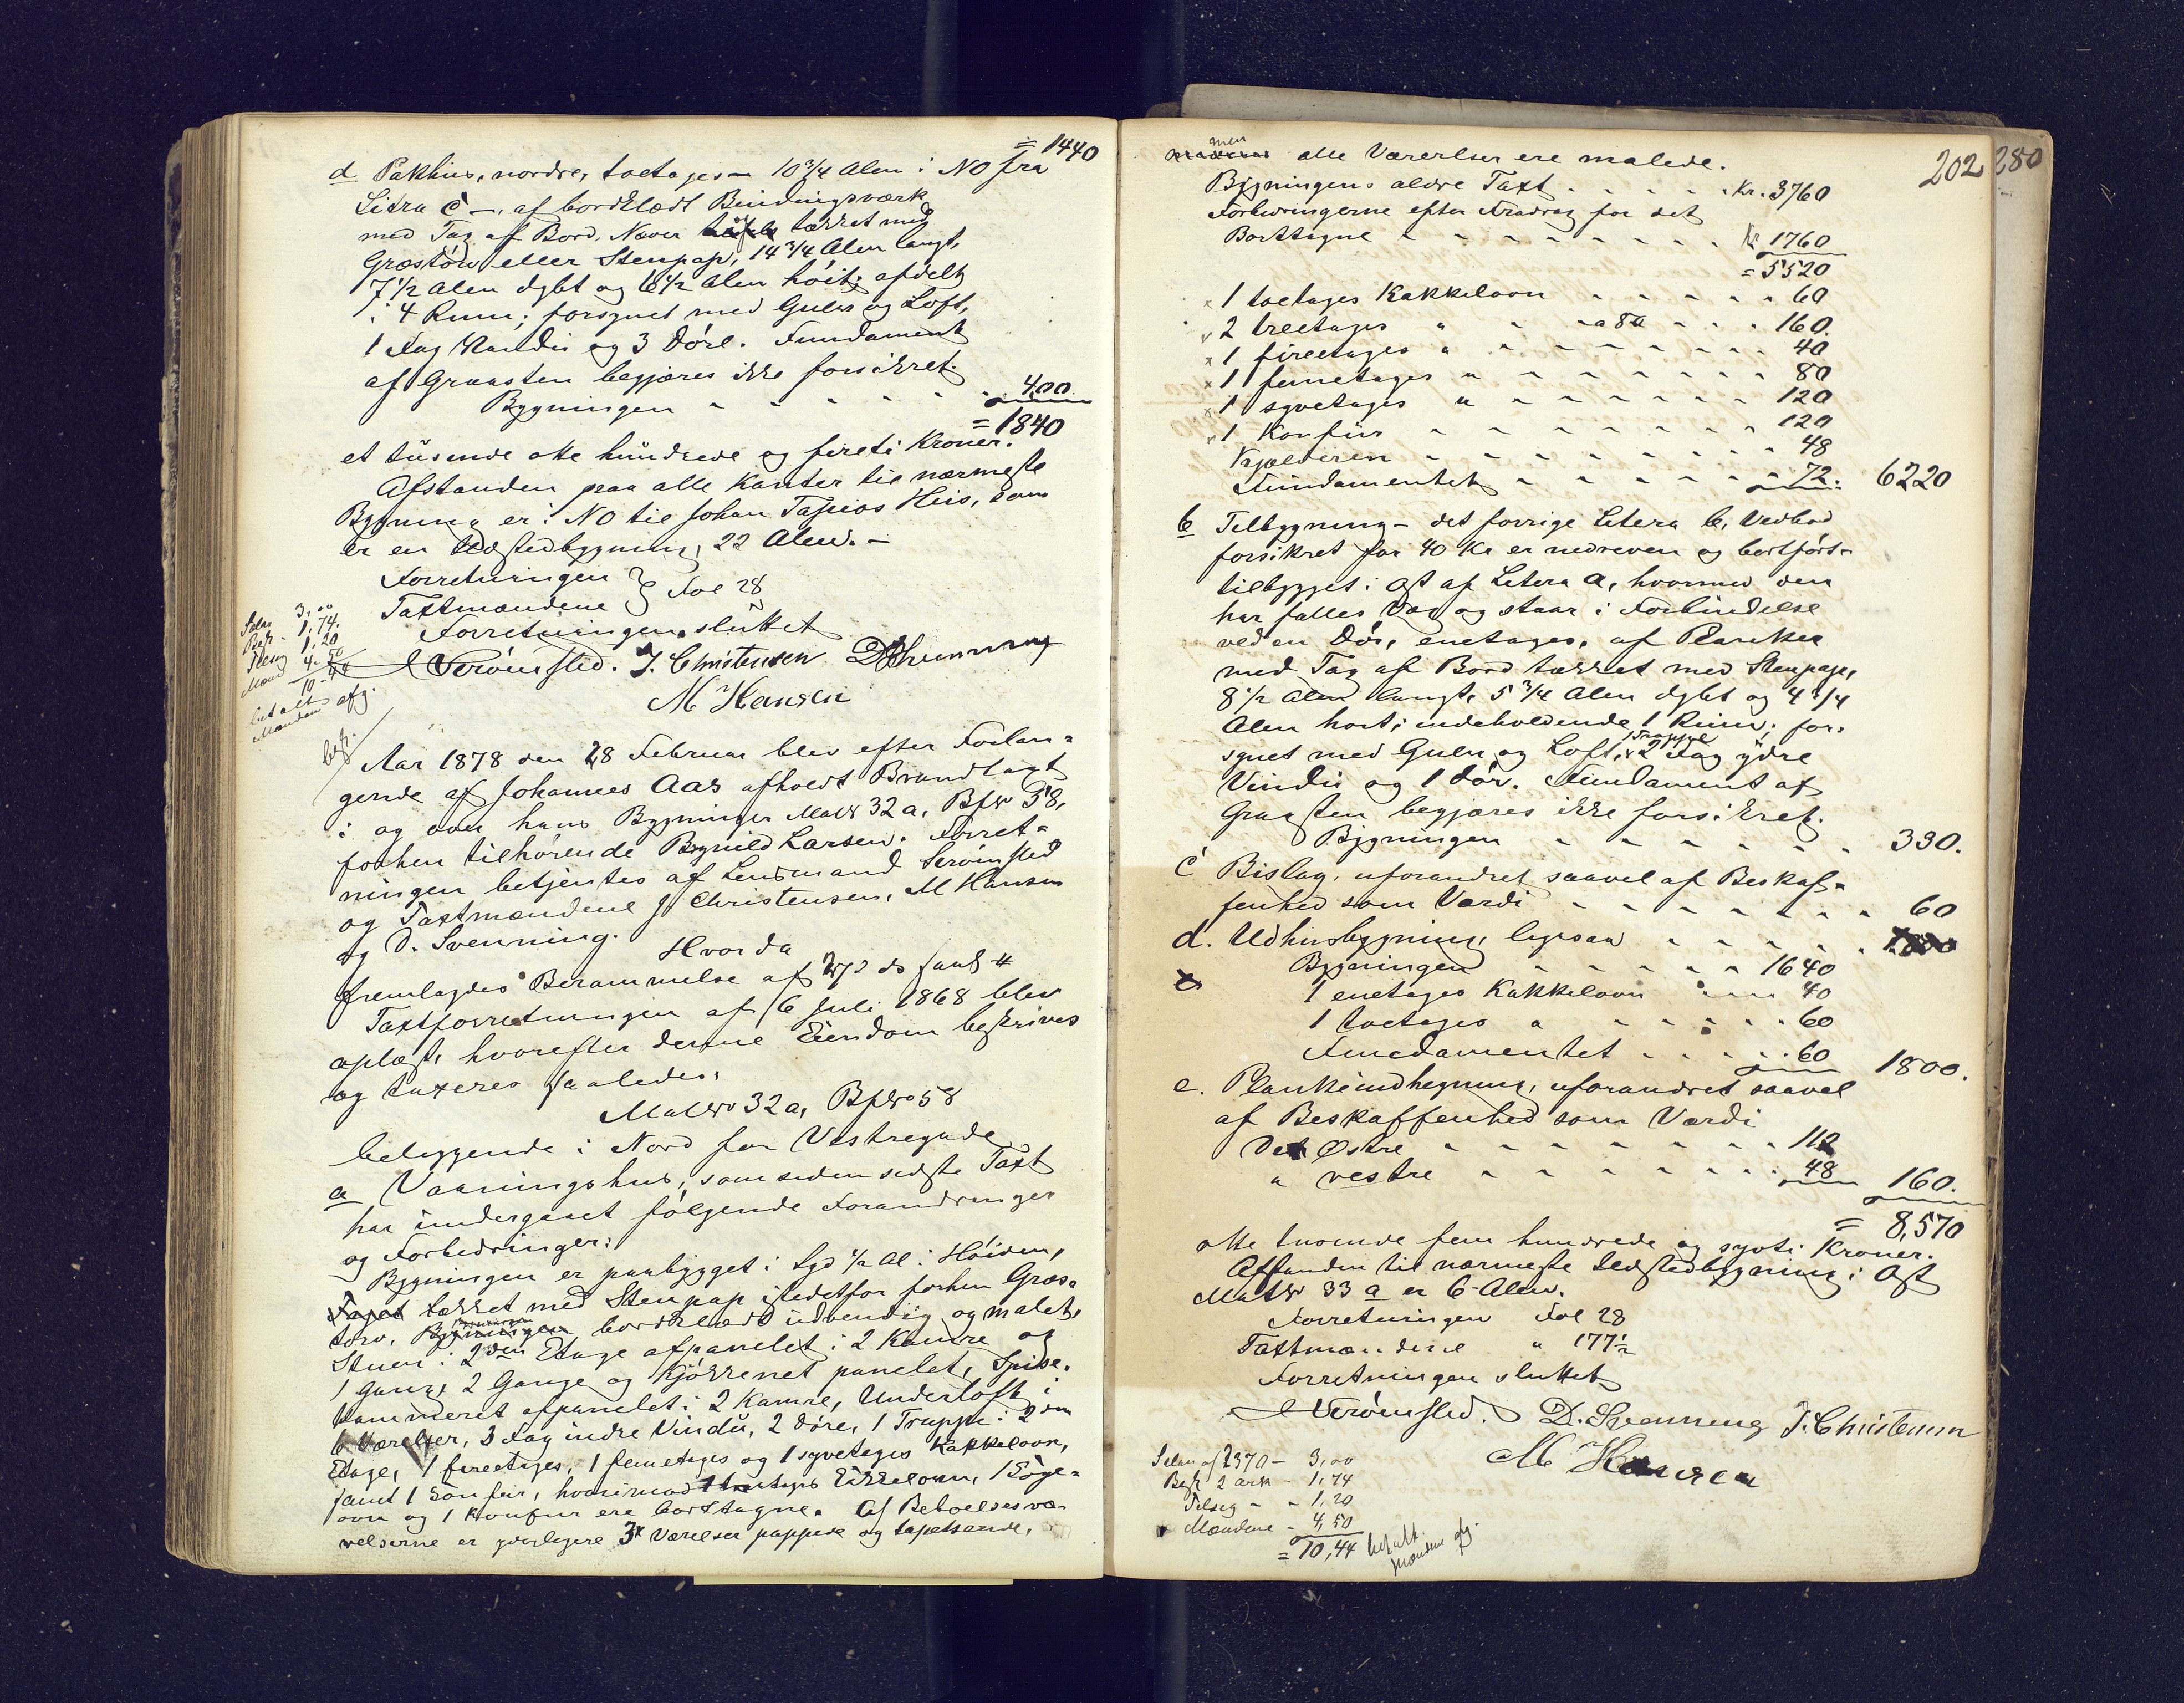 = 1440
d Pakhus, nordre, toetages - 10 3/4 Alen i NO fra
Litra C -, af bordklædt Bindingsværk
med Tag af Bord, Næver tækket med
Græstörv eller Stenpap, 14 3/4 Alen langt,
7 1/2 Alen dybt og 6 1/2 Alen höit, afdelt
i 4 Rum; forsynet med Gulv og Loft,
1 Fag Vindu og 3 Döre. Fundament
af Graasten begjæres ikke forsikret.
Bygningen - - - - - - 400
= 1840
et tusende otte hundrede og fireti Kroner.
Afstanden paa alle Kanter til nærmeste
Bygning er i NO til Johan Tapios Hus, som
er en Ildstedbygning, 22 Alen. -
Forretningen } Fol 28
Taxtmændene
Forretningen sluttet
Strömsted. J. Christensen D Svenning
M Hansen
3,00
1,74.
1,20
4-50
10-44
betalt
Mændene afg.
Aar 1878 den 28 Februar blev efter Forlan=
gende af Johannes Aas afholdt Brandtaxt
i og over hans Bygninger Matr 32 a, Bfr 58,
forhen tilhörende Brynild Larsen. Forret=
ningen betjentes af Lensmand Strömsted
og Taxtmændene J Christensen, M Hansen
og D. Svenning.
Hvorda
fremlagdes Berammelse af 27 ds samt
Taxtforretningen af 6 Juli 1868 blev
oplæst, hvorefter denne Eiendom beskrives
og taxeres saaledes:
Matr 32 a, Bfr 58
beliggende i Nord for Vestregade
a Vaaningshus, som siden sidste Taxt
har undergaaet fölgende Forandringer
og Forbedringer:
Bygningen er paabygget i Syd 1/2 Al: i Höiden,
Taget tækket med Stenpap istedetfor forhen Græs=
torv, Bygningen bordklædt udvendig og malet,
Stuen i 2den Etage afpanelet i 2 Kamre og
1 Gang, 2 Gange og Kjökkenet panelet, Spise=
kammeret afpanelet i 2 Kamre, Underloft i
6 Værelser, 3 Fag indre Vindu, 2 Döre, 1 Trappe i 2den
Etage, 1 fireetages, 1 femetages og 1 syvetages Kakkelovn,
samt 1 Komfur, hvorimod 1 Kakkelovn, 1 Böge=
ovn og 1 Komfur ere borttagne. Af Beboelsesvæ-
relserne er yderligere 3 Værelser pappede og tapetserede,
202 280
men
alle Værelser ere malede.
Bygningens ældre Taxt - - - - Kr. 3760
Forbedringerne efter Fradrag for det
Borttagne - - - - - - - - Kr 1760
= 5520
1 toetages Kakkelovn - - - - - 60
2 treetages " - a 80 - - - 160.
1 fireetages " - - - - - - - 40
1 femetages " - - - - - - - 80
1 syvetages " - - - - - - - 120
1 Komfur - - - - - - - - 120
Kjælderen - - - - - - - - 48
Fundamentet - - - - - - - 72. 6220
b Tilbygning - det forrige Litera b, Vedbod
forsikret for 40 Kr er nedreven og bortfört -
tilbygget i Øst af Litera A, hvormed den
har fælles Væg og staar i Forbindelse
ved en Dör, enetages, af Planker
med Tag af Bord tækket med Stenpap,
8 1/2 Alen langt, 5 3/4 Alen dybt og 4 1/4
Alen höit; indeholdende 1 Rum; for=
synet med Gulv og Loft, 1 Trappe 2 Fag ydre
Vindu og 1 dör. Fundament af
Graasten begjæres ikke forsikret.
Bygningen - - - - - - 330.
c Bislag, uforandret saavel af Beskaf=
fenhed som Værdi - - - - - - 60
d. Udhusbygning, ligesaa - - - - - 1800
Bygningen - - - - - 1640
1 enetages Kakkelovn - - - 40
1 toetages " - - - - - 60
Fundamentet - - - - - 60 1800.
e. Plankeindhegning, uforandret saavel
af Beskaffenhed som Værdi
Det Østre - - - - - - - - 112
" vestre - - - - - - - - 48 160.
= 8,570
otte tusende fem hundrede og sytti Kroner.
Afstanden til nærmeste Ildstedbygning i Øst
Matr 33 a er 6 Alen.
Forretningen Fol 28
Taxtmændene " 177 1/2
Forretningen sluttet
Strömsted. D. Svenning J. Christensen
M Hansen
Selen af 2370 - 3,00
Besk 2 ark - 1,74
Tilsig - - 1,20
Mændene - 4,50
= 10,44 betalt.
Mændene afg.